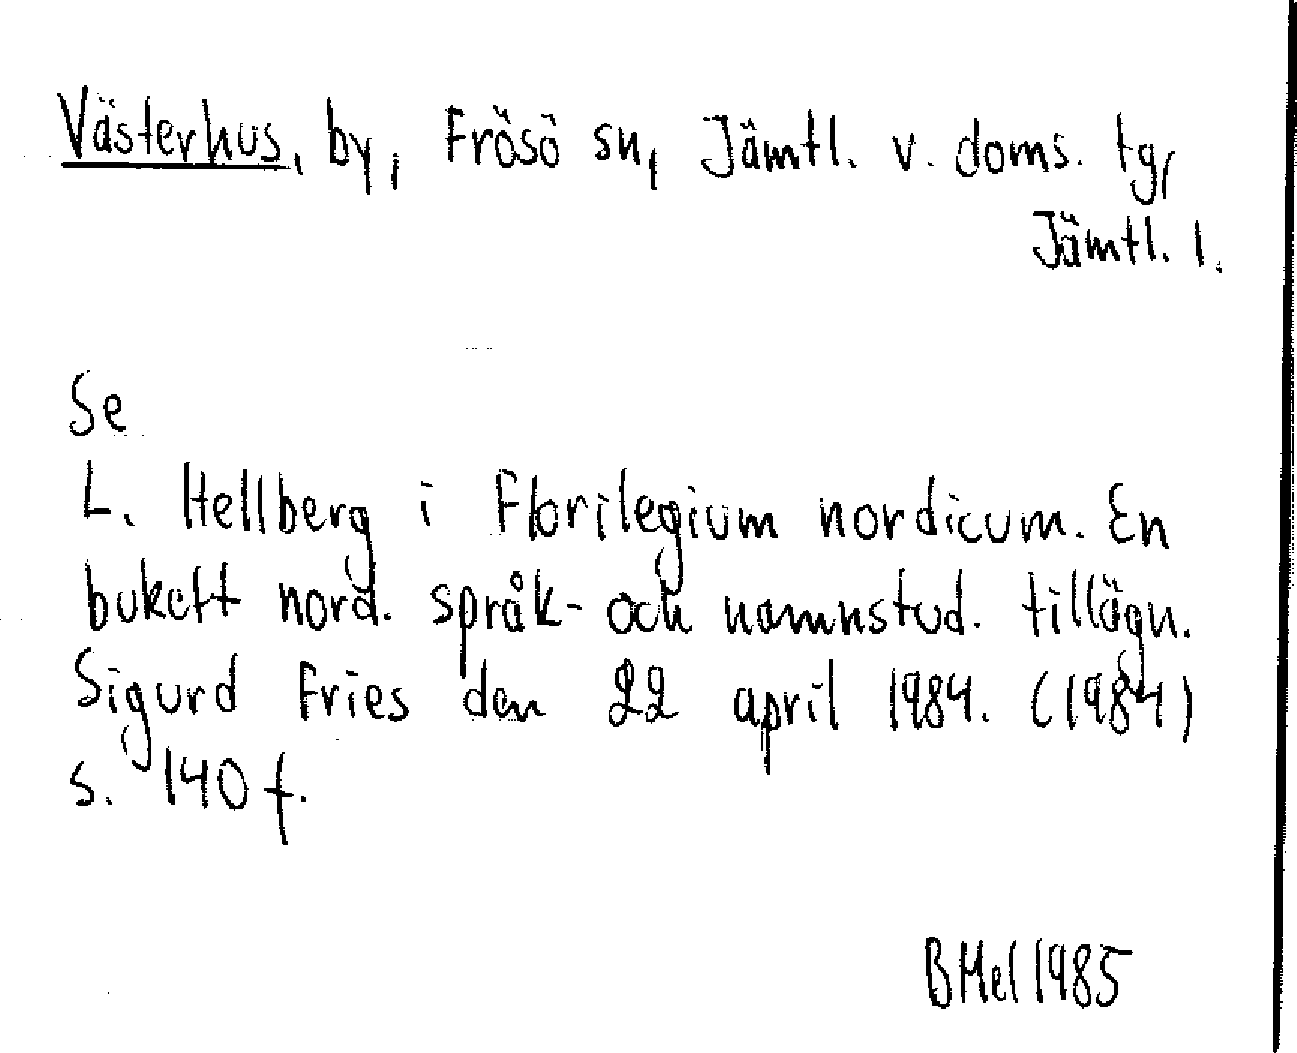 Västerhus, by, Frösö sn, Jämtl. v. doms. tg,
Jämtl. l.
Se
L. Hellberg i Florilegium nordicum. En
bukett nord. språk- och namnstud. tillägn.
Sigurd Fries den 22 april 1984. (1984)
s. 140 f.
BHel 1985